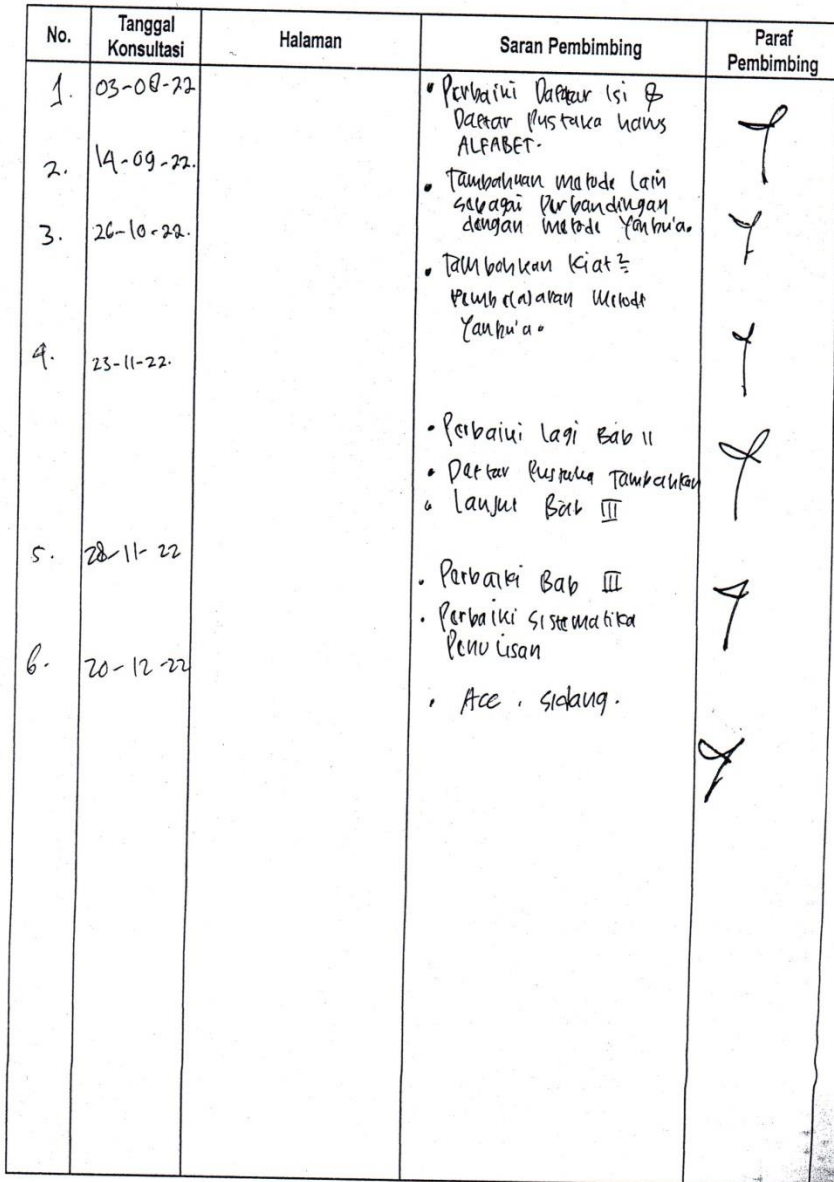 No.
Tanggal
Konsultasi
Halaman
Saran Pembimbing
Paraf
Pembimbing
1.
03-08-22
• Perbaiki Daftar Isi &
Daftar Pustaka harus
ALFABET.
2.
14-09-22.
• Tambahkan metode lain
sebagai Perbandingan
dengan metode Yanbu'a.
3.
26-10-22.
• Tambahkan Kiat2
Pembelajaran Metode
Yanbu'a.
4.
23-11-22.
• Perbaiki lagi Bab II
• Daftar Pustaka Tambahkan
• Lanjut Bab III
5.
28-11-22
• Perbaiki Bab III
• Perbaiki Sistematika
Penulisan
6.
20-12-22
• Acc. Sidang.